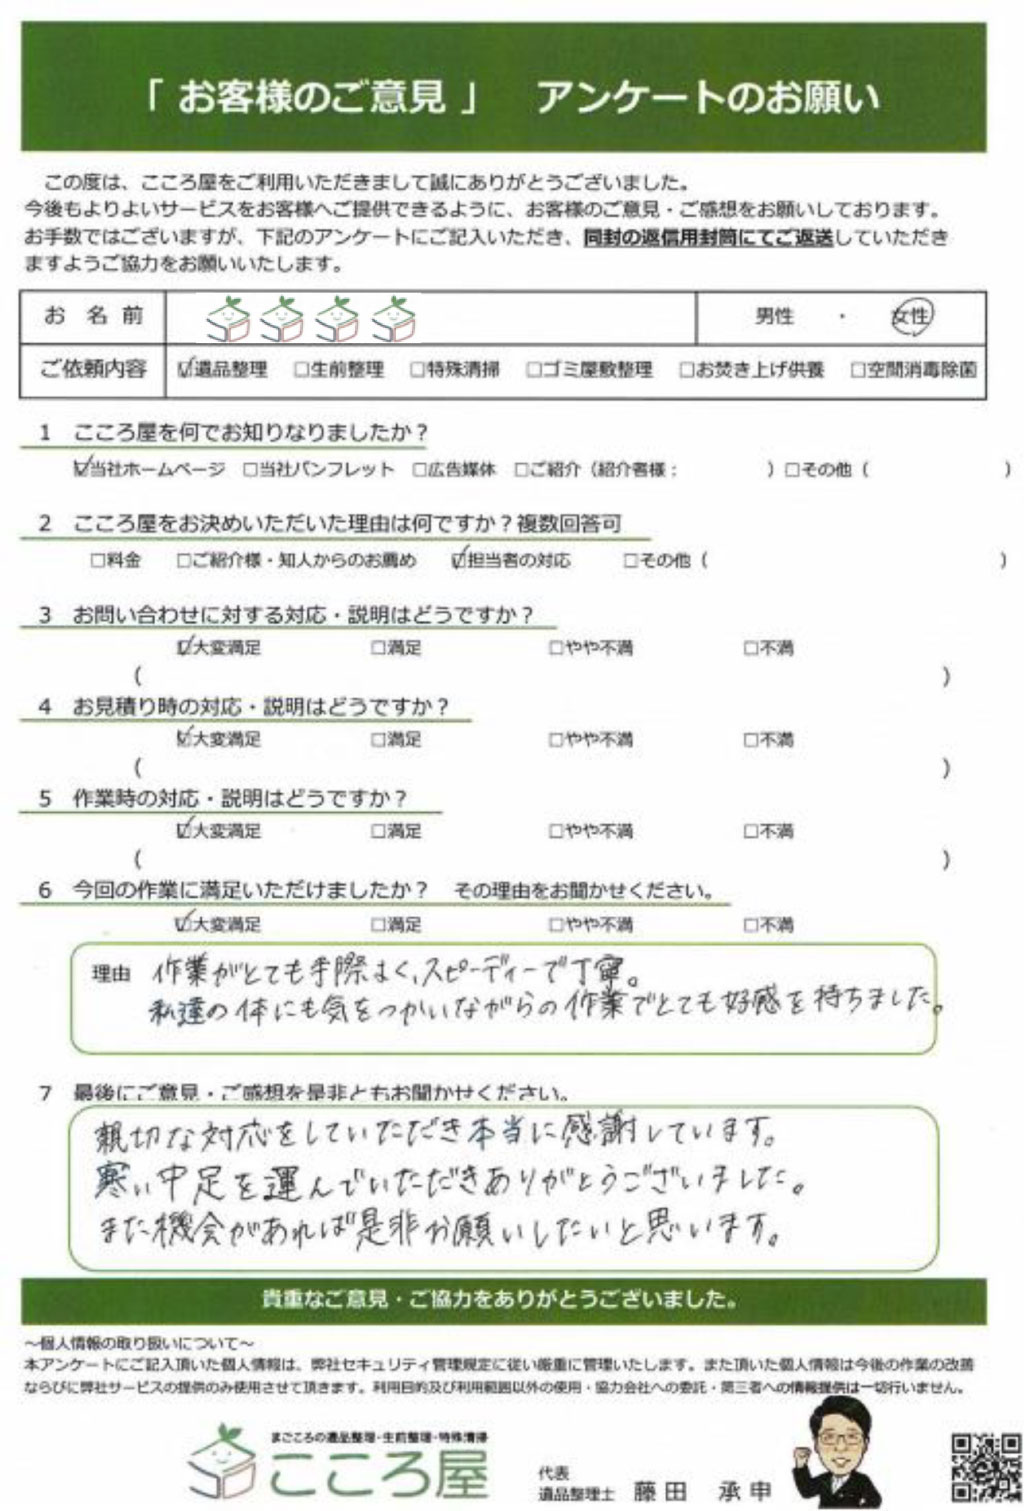 「 お客様のご意見 」　アンケートのお願い
この度は、こころ屋をご利用いただきまして誠にありがとうございました。
今後もよりよいサービスをお客様へご提供できるように、お客様のご意見・ご感想をお願いしております。
お手数ではございますが、下記のアンケートにご記入いただき、同封の返信用封筒にてご返送していただき
ますようご協力をお願いいたします。
お 名 前　男性　・　女性
ご依頼内容　☑遺品整理　□生前整理　□特殊清掃　□ゴミ屋敷整理　□お焚き上げ供養　□空間消毒除菌
1　こころ屋を何でお知りなりましたか？
☑当社ホームページ　□当社パンフレット　□広告媒体　□ご紹介（紹介者様：　　　　）□その他（　　　　　　）
2　こころ屋をお決めいただいた理由は何ですか？複数回答可
□料金　□ご紹介様・知人からのお薦め　☑担当者の対応　□その他（　　　　　　）
3　お問い合わせに対する対応・説明はどうですか？
☑大変満足　□満足　□やや不満　□不満
（　　　　　　）
4　お見積り時の対応・説明はどうですか？
☑大変満足　□満足　□やや不満　□不満
（　　　　　　）
5　作業時の対応・説明はどうですか？
☑大変満足　□満足　□やや不満　□不満
（　　　　　　）
6　今回の作業に満足いただけましたか？　その理由をお聞かせください。
☑大変満足　□満足　□やや不満　□不満
理由　作業がとても手際よく、スピーディーで丁寧。
私達の体にも気をつかいながらの作業でとても好感を持ちました。
7　最後にご意見・ご感想を是非ともお聞かせください。
親切な対応をしていただき本当に感謝しています。
寒い中足を運んでいただきありがとうございました。
また機会があれば是非お願いしたいと思います。
貴重なご意見・ご協力をありがとうございました。
～個人情報の取り扱いについて～
本アンケートにご記入頂いた個人情報は、弊社セキュリティ管理規定に従い厳重に管理いたします。また頂いた個人情報は今後の作業の改善
ならびに弊社サービスの提供のみ使用させて頂きます。利用目的及び利用範囲以外の使用・協力会社への委託・第三者への情報提供は一切行いません。
まごころの遺品整理・生前整理・特殊清掃
こころ屋
代表
遺品整理士　藤田　承申